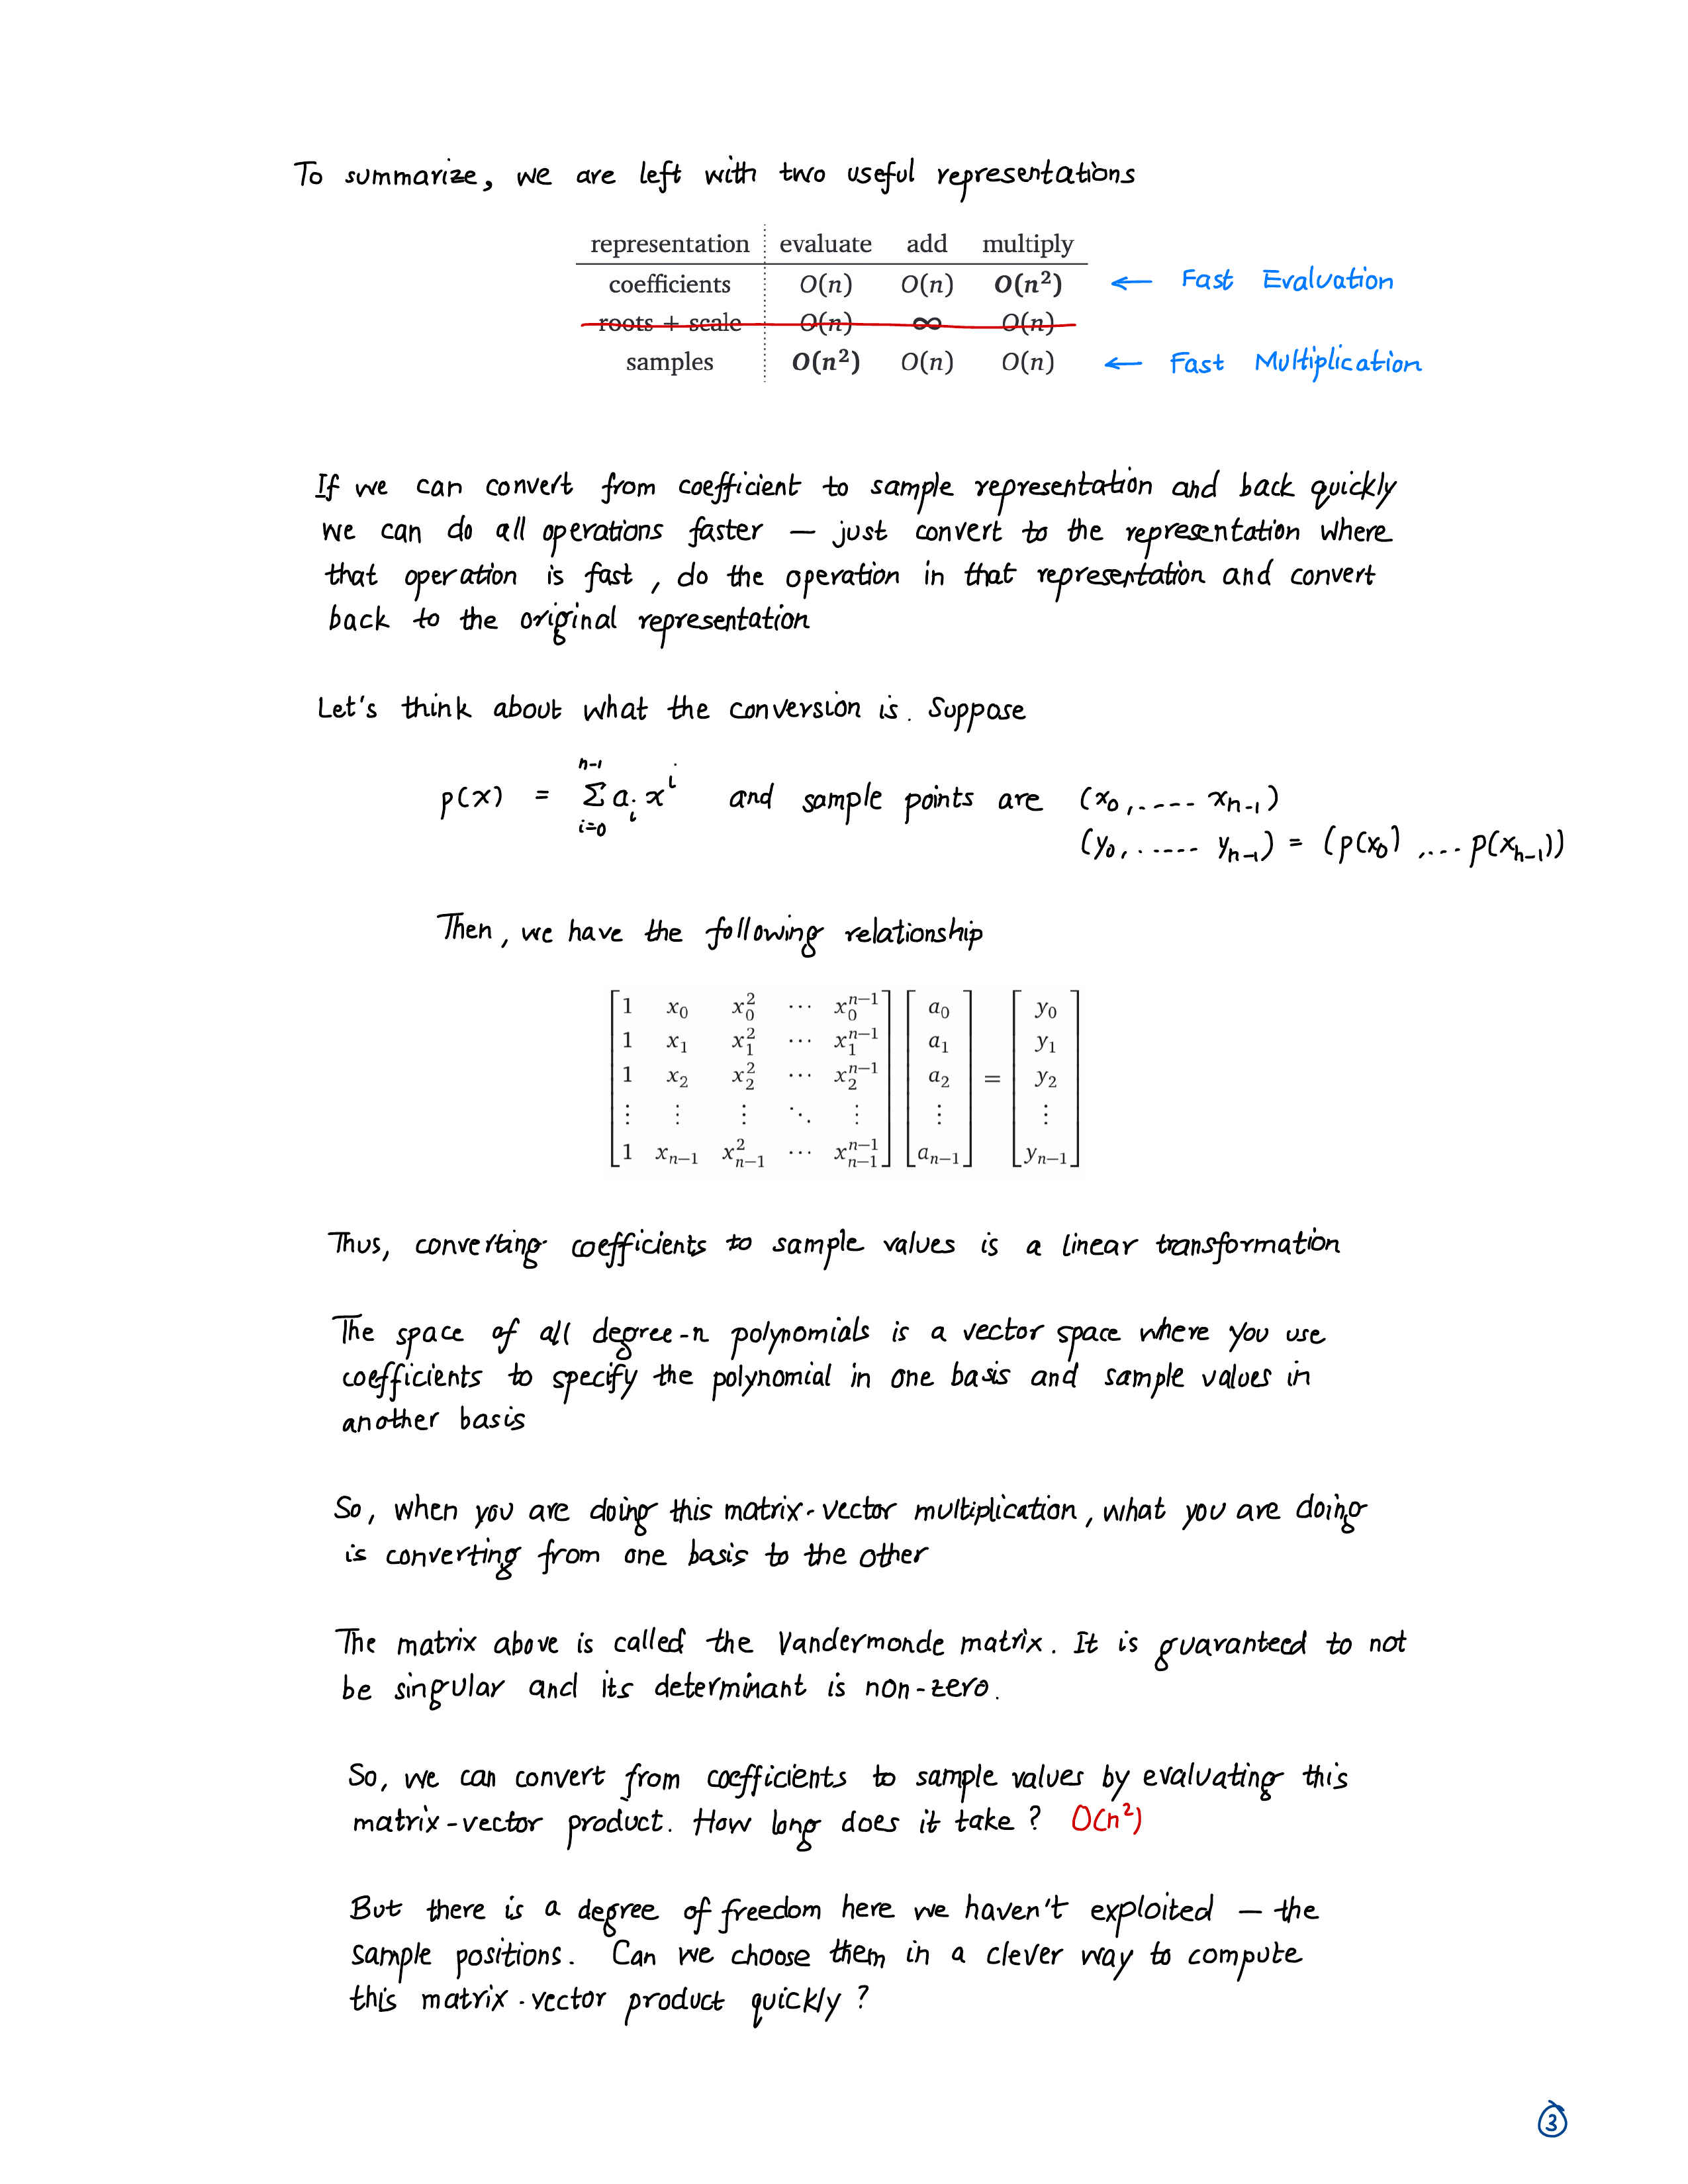 To summarize, we are left with two useful representations
representation evaluate add multiply
coefficients O(n) O(n) O(n²) ← Fast Evaluation
roots + scale O(n) ∞ O(n)
samples O(n²) O(n) O(n) ← Fast Multiplication
If we can convert from coefficient to sample representation and back quickly
we can do all operations faster — just convert to the representation where
that operation is fast, do the operation in that representation and convert
back to the original representation
Let's think about what the conversion is. Suppose
p(x) = Σ_{i=0}^{n-1} a_i x^i and sample points are (x_0, ..... x_{n-1})
(y_0, ...... y_{n-1}) = (p(x_0) , .... p(x_{n-1}))
Then, we have the following relationship
1 x_0 x_0^2 ⋯ x_0^{n−1} a_0 y_0
1 x_1 x_1^2 ⋯ x_1^{n−1} a_1 y_1
1 x_2 x_2^2 ⋯ x_2^{n−1} a_2 = y_2
⋮ ⋮ ⋮ ⋱ ⋮ ⋮ ⋮
1 x_{n−1} x_{n−1}^2 ⋯ x_{n−1}^{n−1} a_{n−1} y_{n−1}
Thus, converting coefficients to sample values is a linear transformation
The space of all degree-n polynomials is a vector space where you use
coefficients to specify the polynomial in one basis and sample values in
another basis
So, when you are doing this matrix-vector multiplication, what you are doing
is converting from one basis to the other
The matrix above is called the Vandermonde matrix. It is guaranteed to not
be singular and its determinant is non-zero.
So, we can convert from coefficients to sample values by evaluating this
matrix-vector product. How long does it take? O(n²)
But there is a degree of freedom here we haven't exploited — the
sample positions. Can we choose them in a clever way to compute
this matrix-vector product quickly?
3